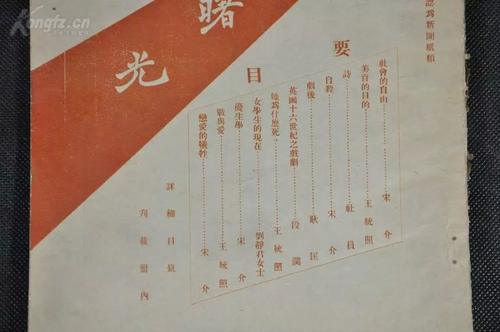 認爲新聞紙類
曙光
要目
社會的自由………宋介
美育的目的………王統照
詩………社員
自殺………宋介
劇後………耿匡
英國十六世紀之戲劇………段瀾
她爲什麽死………王統照
女學生的現在………劉靜君女士
優生學………宋介
戰與愛………王統照
戀愛的犧牲………宋介
詳細目錄
刊載册內
Kongfz.cn